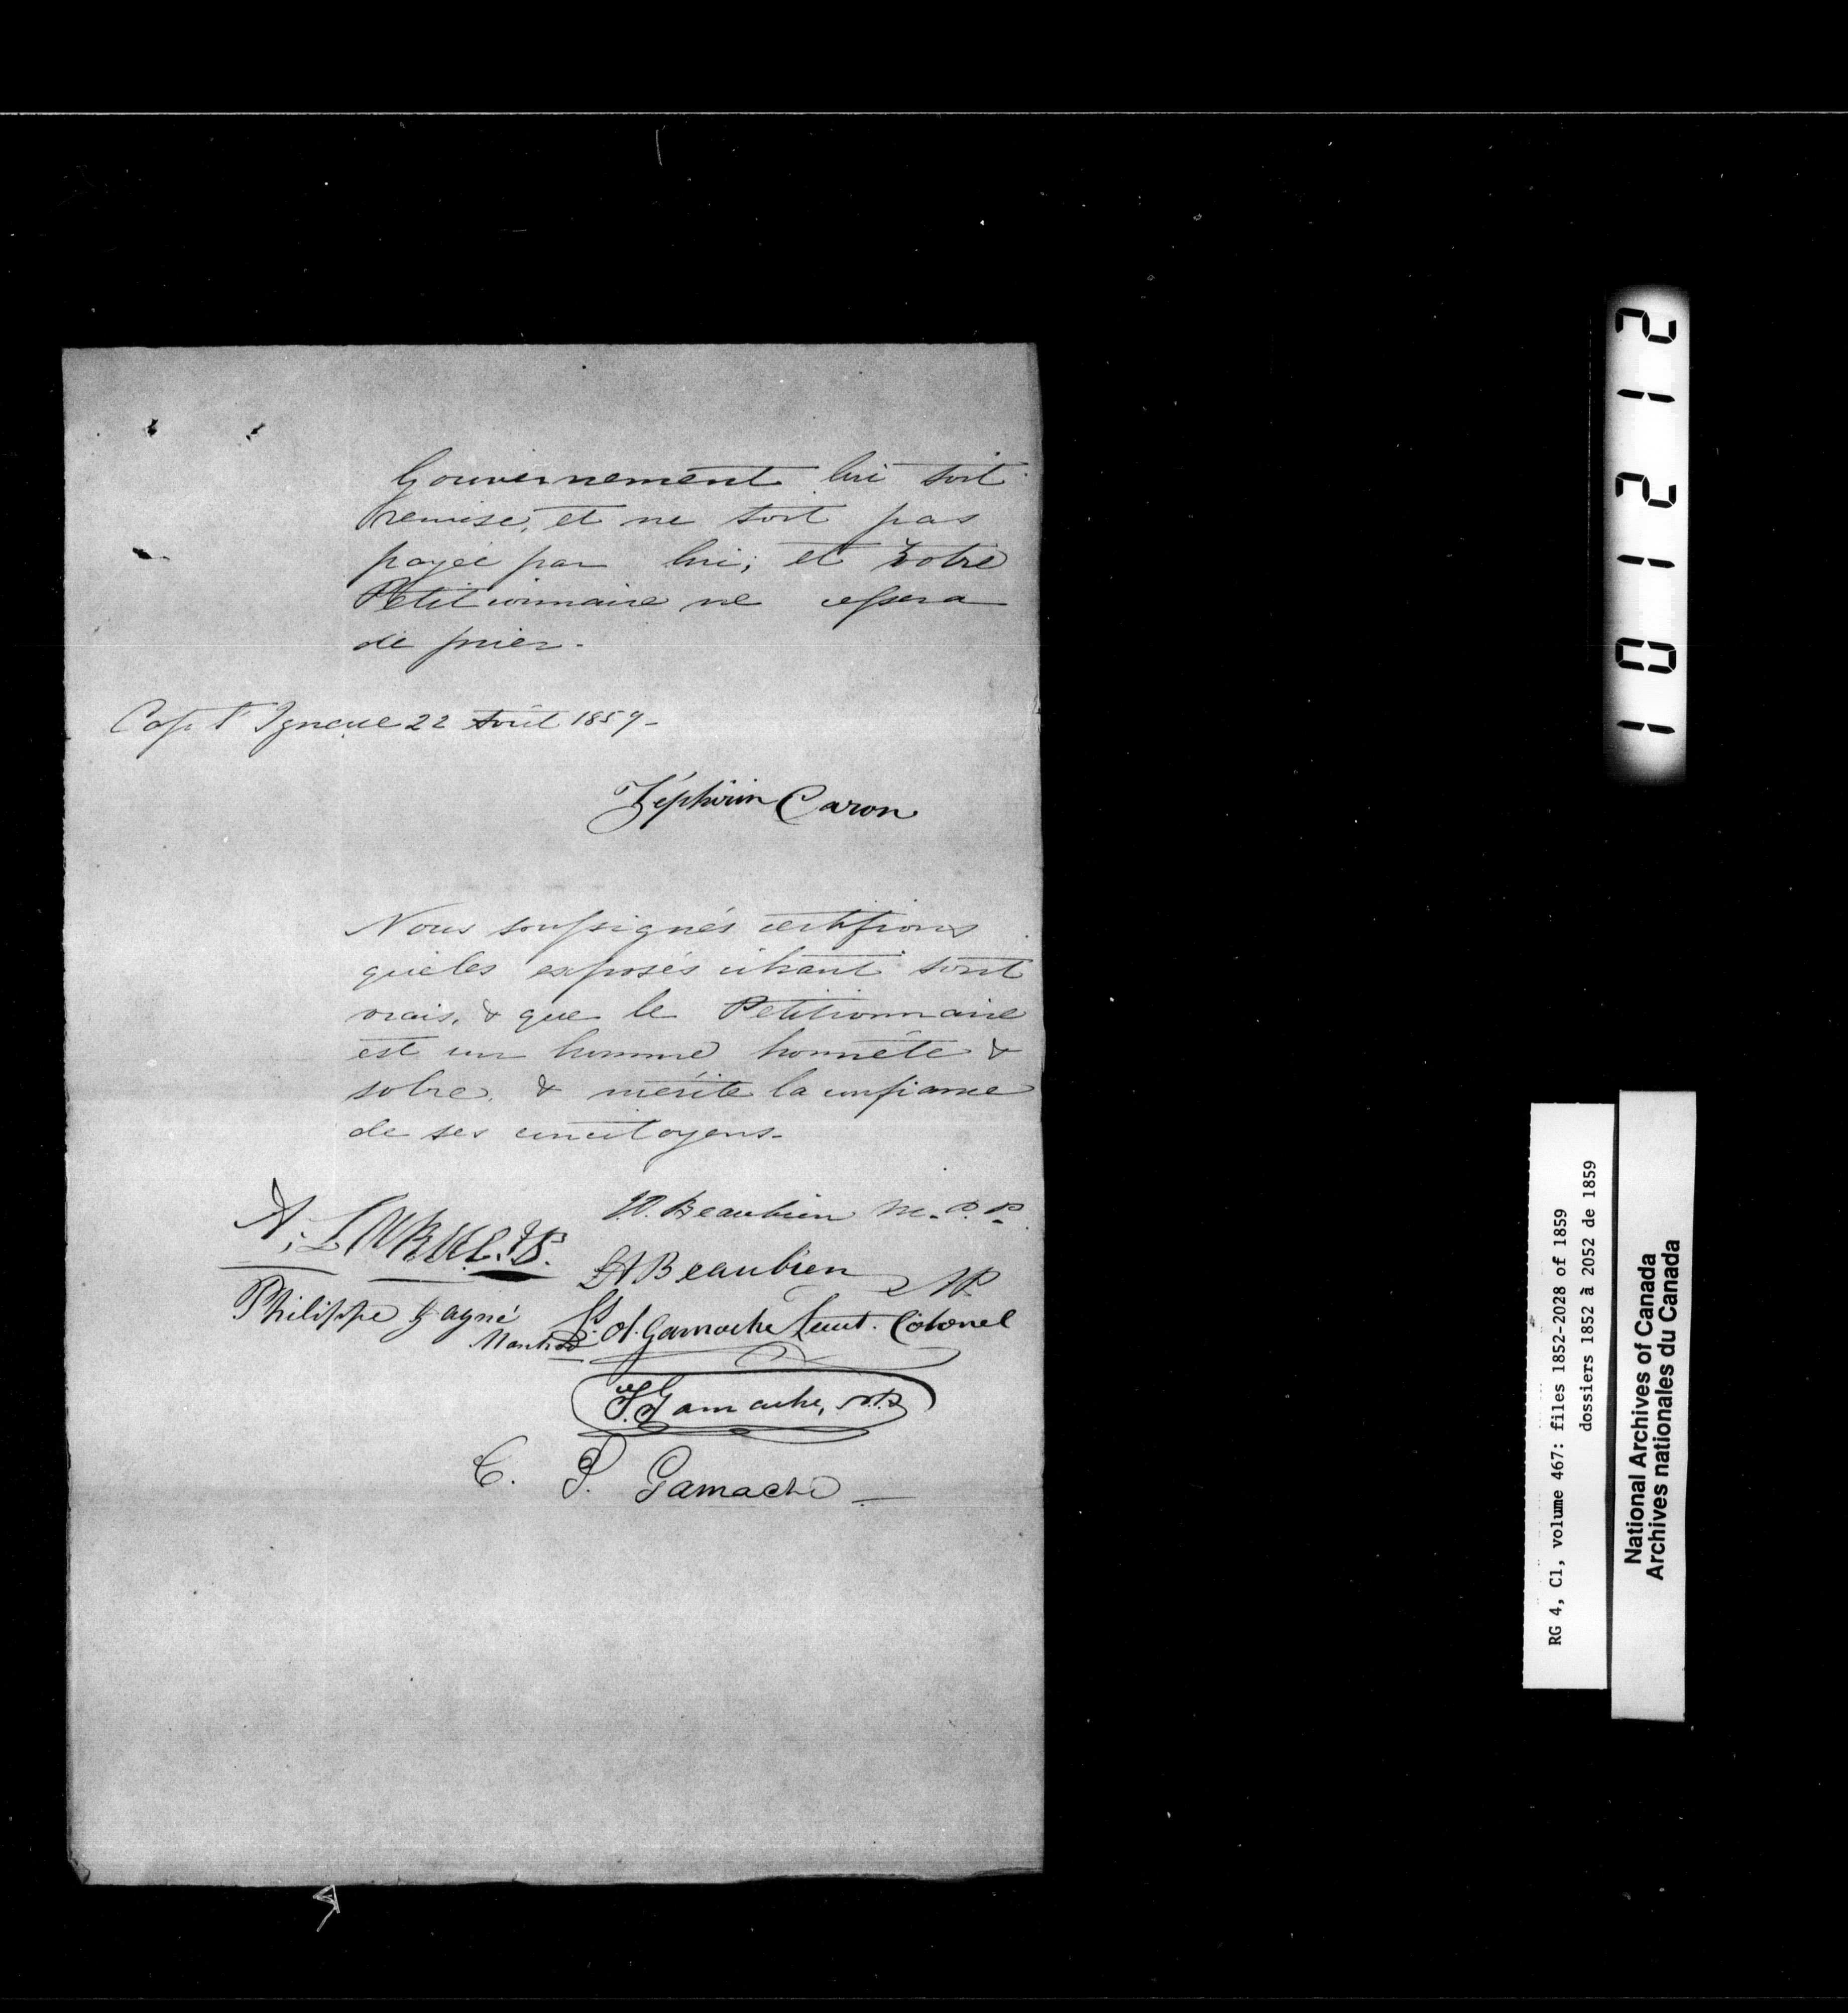 Gouvernement lui soit
remise, et ne soit pas
payée par lui; et Votre
Petitionnaire ne cessera
de prier.
Cap St Ignace 22 Août 1859 -
Zéphirin Caron
Nous soussignés certifions
que les exposés cihaut sont
vrais, & que le Petitionnaire
est un homme honnête &
sobre, & mérite la confiance
de ses concitoyens.
O. Beaubien M.P.P.
A.
LA Beaubien NP
Philippe Gagné
Gamache Lieut. Colonel
Gamache, N.P.
C. P. Gamache
101212
RG 4, C1, volume 467: files 1852-2028 of 1859
dossiers 1852 à 2052 de 1859
National Archives of Canada
Archives nationales du Canada